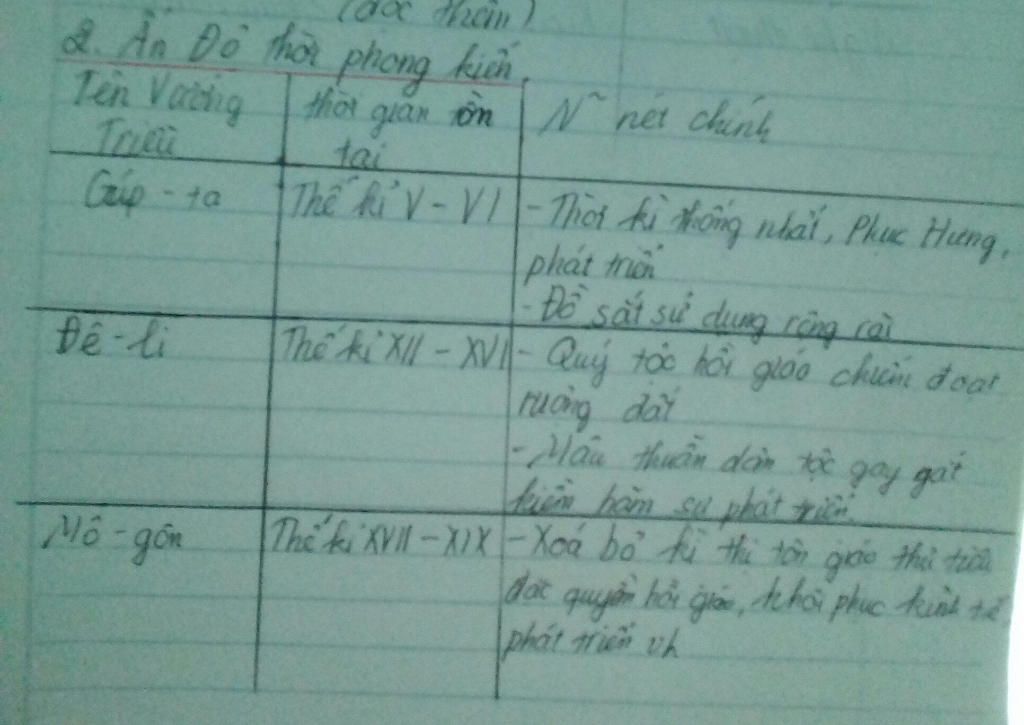 (đọc thêm)
2. Ấn Độ thời phong kiến.
Tên Vương Triều
thời gian tồn tại
N~ nét chính
Gúp-ta
Thế kỉ V - VI
- Thời kì thống nhất, Phục Hưng,
phát triển
- Đồ sắt sử dụng rộng rãi
Đê-li
Thế kỉ XII - XVI
- Quý tộc hồi giáo chiếm đoạt
ruộng đất
- Mâu thuẫn dân tộc gay gắt
kiềm hãm sự phát triển.
Mô-gôn
Thế kỉ XVII - XIX
- Xoá bỏ kì thị tôn giáo thủ tiêu
đặc quyền hồi giáo, khôi phục kinh tế,
phát triển vh